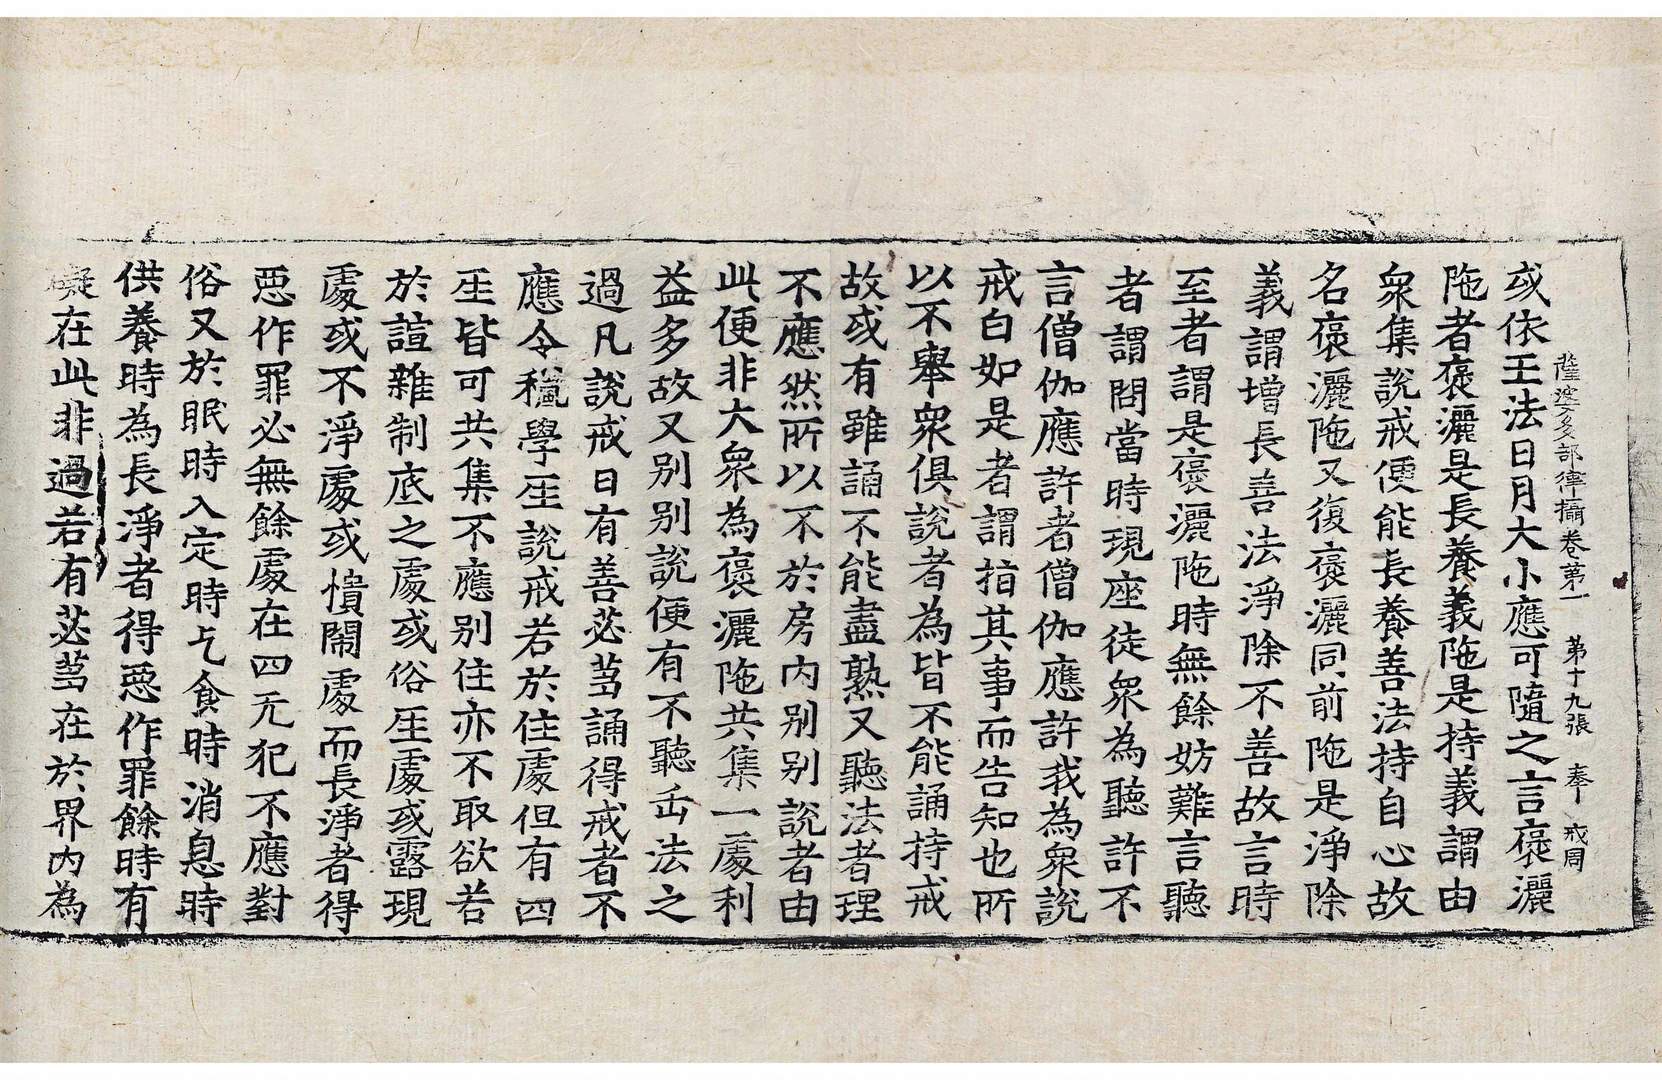 薩婆多部律攝卷第一 第十九張 奉 戒周
或依王法日月大小應可隨之言褒灑
陁者褒灑是長養義陁是持義謂由
衆集說戒便能長養善法持自心故
名褒灑陁又復褒灑同前陁是淨除
義謂增長善法淨除不善故言時
至者謂是褒灑陁時無餘妨難言聽
者謂問當時現座徒衆為聽許不
言僧伽應許者僧伽應許我為衆說
戒白如是者謂指其事而告知也所
以不舉衆俱說者為皆不能誦持戒
故或有雖誦不能盡熟又聽法者理
不應然所以不於房內別別說者由
此便非大衆為褒灑陁共集一處利
益多故又別別說便有不聽正法之
過凡說戒日有善苾蒭誦得戒者不
應令穢學𤯓說戒若於住處但有四
𤯓皆可共集不應別住亦不取欲若
於諠雜制底之處或俗𤯓處或露現
處或不淨處或憒鬧處而長淨者得
惡作罪必無餘處在四无犯不應對
俗又於眠時入定時乞食時消息時
供養時為長淨者得惡作罪餘時有
礙在此非過若有苾蒭在於界內為